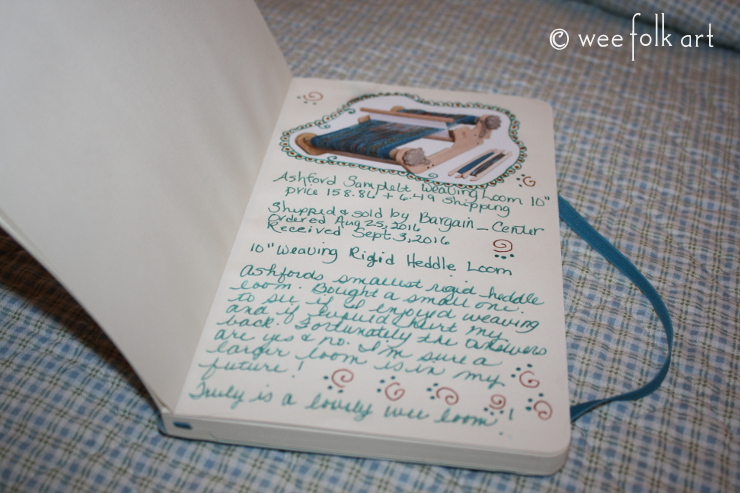 © wee folk art
Ashford SampleIt Weaving Loom 10"
price 158.86 + 6.49 shipping
Shipped & sold by Bargain_Center
Ordered Aug 25, 2016
Received Sept. 3, 2016
10" Weaving Rigid Heddle Loom
Ashfords smallest rigid heddle
loom. Bought a small one
to see if I enjoyed weaving
and if it would hurt my
back. Fortunately the answers
are yes & no. I'm sure a
larger loom is in my
future!
Truly is a lovely wee loom!